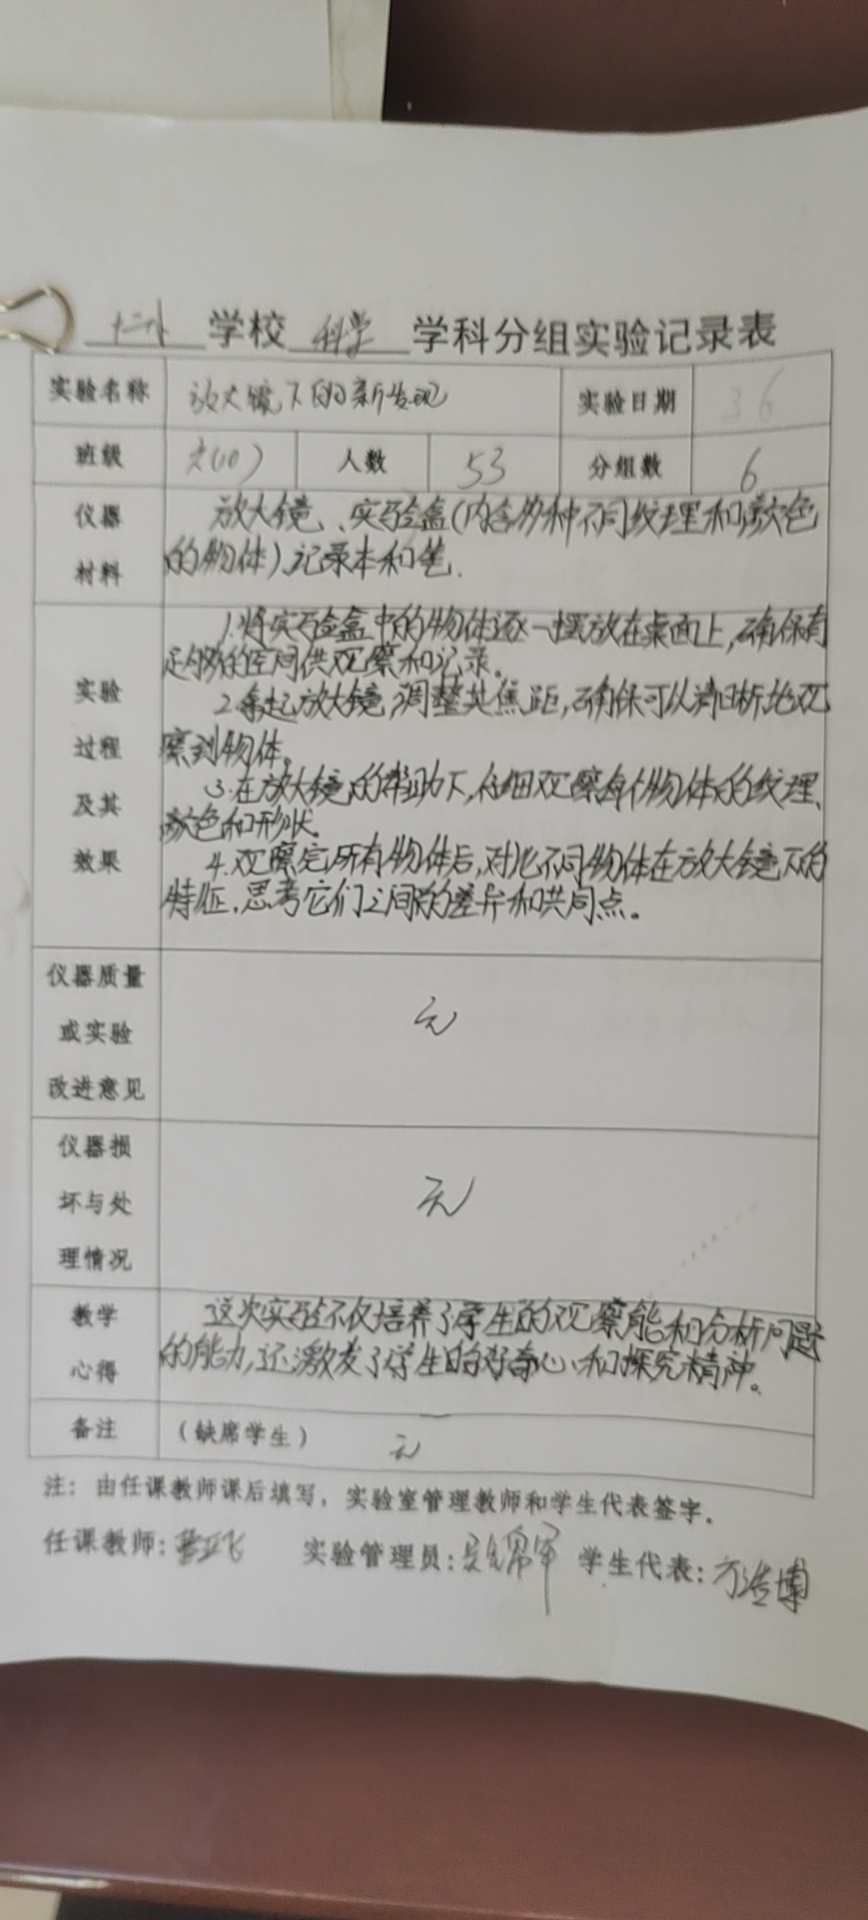 十二小 学校 科学 学科分组实验记录表
实验名称 放大镜下的新发现 实验日期 3 6
班级 六(10) 人数 53 分组数 6
仪器材料
放大镜、实验盒(内含多种不同纹理和颜色
的物体)记录本和笔.
实验过程及其效果
1.将实验盒中的物体逐一摆放在桌面上,确保有
足够的空间供观察和记录。
2.拿起放大镜,调整其焦距,确保可以清晰地观
察到物体。
3.在放大镜的帮助下,仔细观察每个物体的纹理、
颜色和形状.
4.观察完所有物体后,对比不同物体在放大镜下的
特征.思考它们之间的差异和共同点。
仪器质量或实验改进意见
无
仪器损坏与处理情况
无
教学心得
这次实验不仅培养了学生的观察能和分析问题
的能力,还激发了学生的好奇心和探究精神。
备注 (缺席学生) 无
注：由任课教师课后填写，实验室管理教师和学生代表签字。
任课教师: 实验管理员: 学生代表: